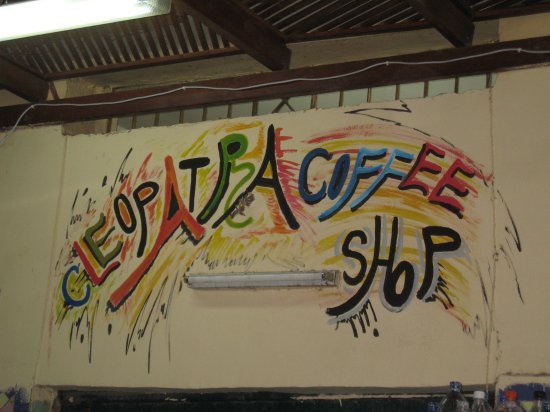 CLEOPATRA COFFEE
SHOP